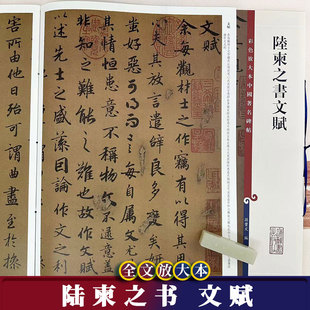 彩色放大本中國著名碑帖
陸柬之書文賦
文賦
余每觀材士之作竊有以得其用
夫其放言遣辭良多變矣妍
蚩好惡可得而言每自屬文尤
其情恒患意不稱物文不逮意蓋
非知之難能之難也故作文賦
以述先士之盛藻因論作文之利
害所由他日殆可謂曲盡至於操
全文放大本
陆柬之书 文赋